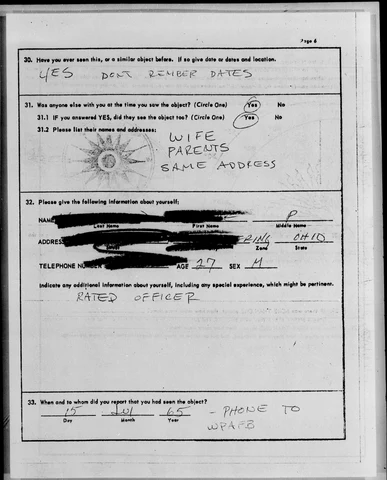 Page 6
30. Have you ever seen this, or a similar object before. If so give date or dates and location.
YES DONT REMBER DATES
31. Was anyone else with you at the time you saw the object? (Circle One) Yes No
31.1 IF you answered YES, did they see the object too? (Circle One) Yes No
31.2 Please list their names and addresses:
WIFE
PARENTS
SAME ADDRESS
32. Please give the following information about yourself:
NAME P
Last Name First Name Middle Name
ADDRESS ERING OHIO
Street Zone State
TELEPHONE NUMBER AGE 27 SEX M
Indicate any additional information about yourself, including any special experience, which might be pertinent.
RATED OFFICER
33. When and to whom did you report that you had seen the object?
15 JUL 65 - PHONE TO
Day Month Year WPAFB